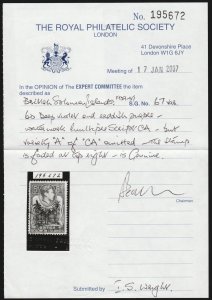 No. 195672
THE ROYAL PHILATELIC SOCIETY
LONDON
41 Devonshire Place
London W1G 6JY
Meeting of 17 JAN 2007
In the OPINION of The EXPERT COMMITTEE the item
described as
British Solomon Islands S.G. No. 67 var.
6d Deep violet and reddish purple -
watermark multiple Script CA - but
variety "A" of "CA" omitted - the stamp
is faded at top right - is Genuine.
195672
Chairman
Submitted by I.S. Wright